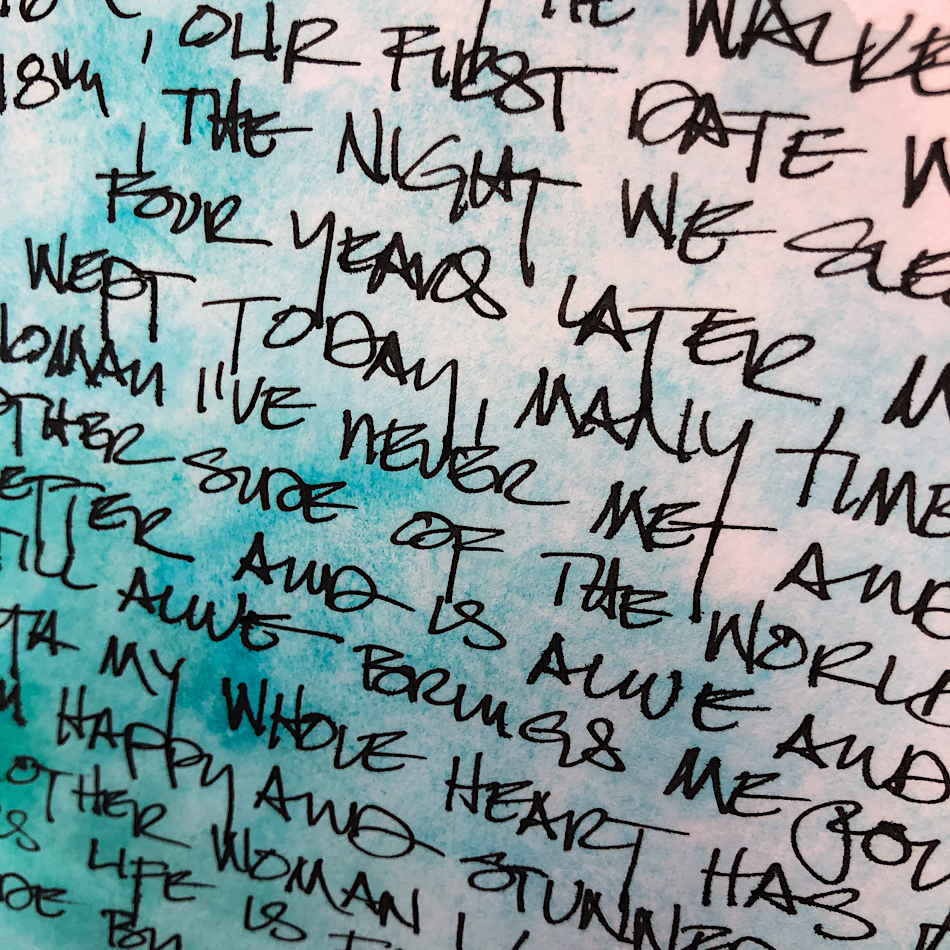 HE WALKE
18th, OUR FIRST DATE W
THE NIGHT WE SLE
FOUR YEARS LATER M
WEPT TODAY, MANY TIME
WOMAN I'VE NEVER MET AND
OTHER SIDE OF THE WORLD
ETTER AND IS ALIVE AND
TILL ALIVE BRINGS ME JOY
TH MY WHOLE HEART HAS
M HAPPY AND STUNNED
OTHER WOMAN
IS LIFE IS
DE BY